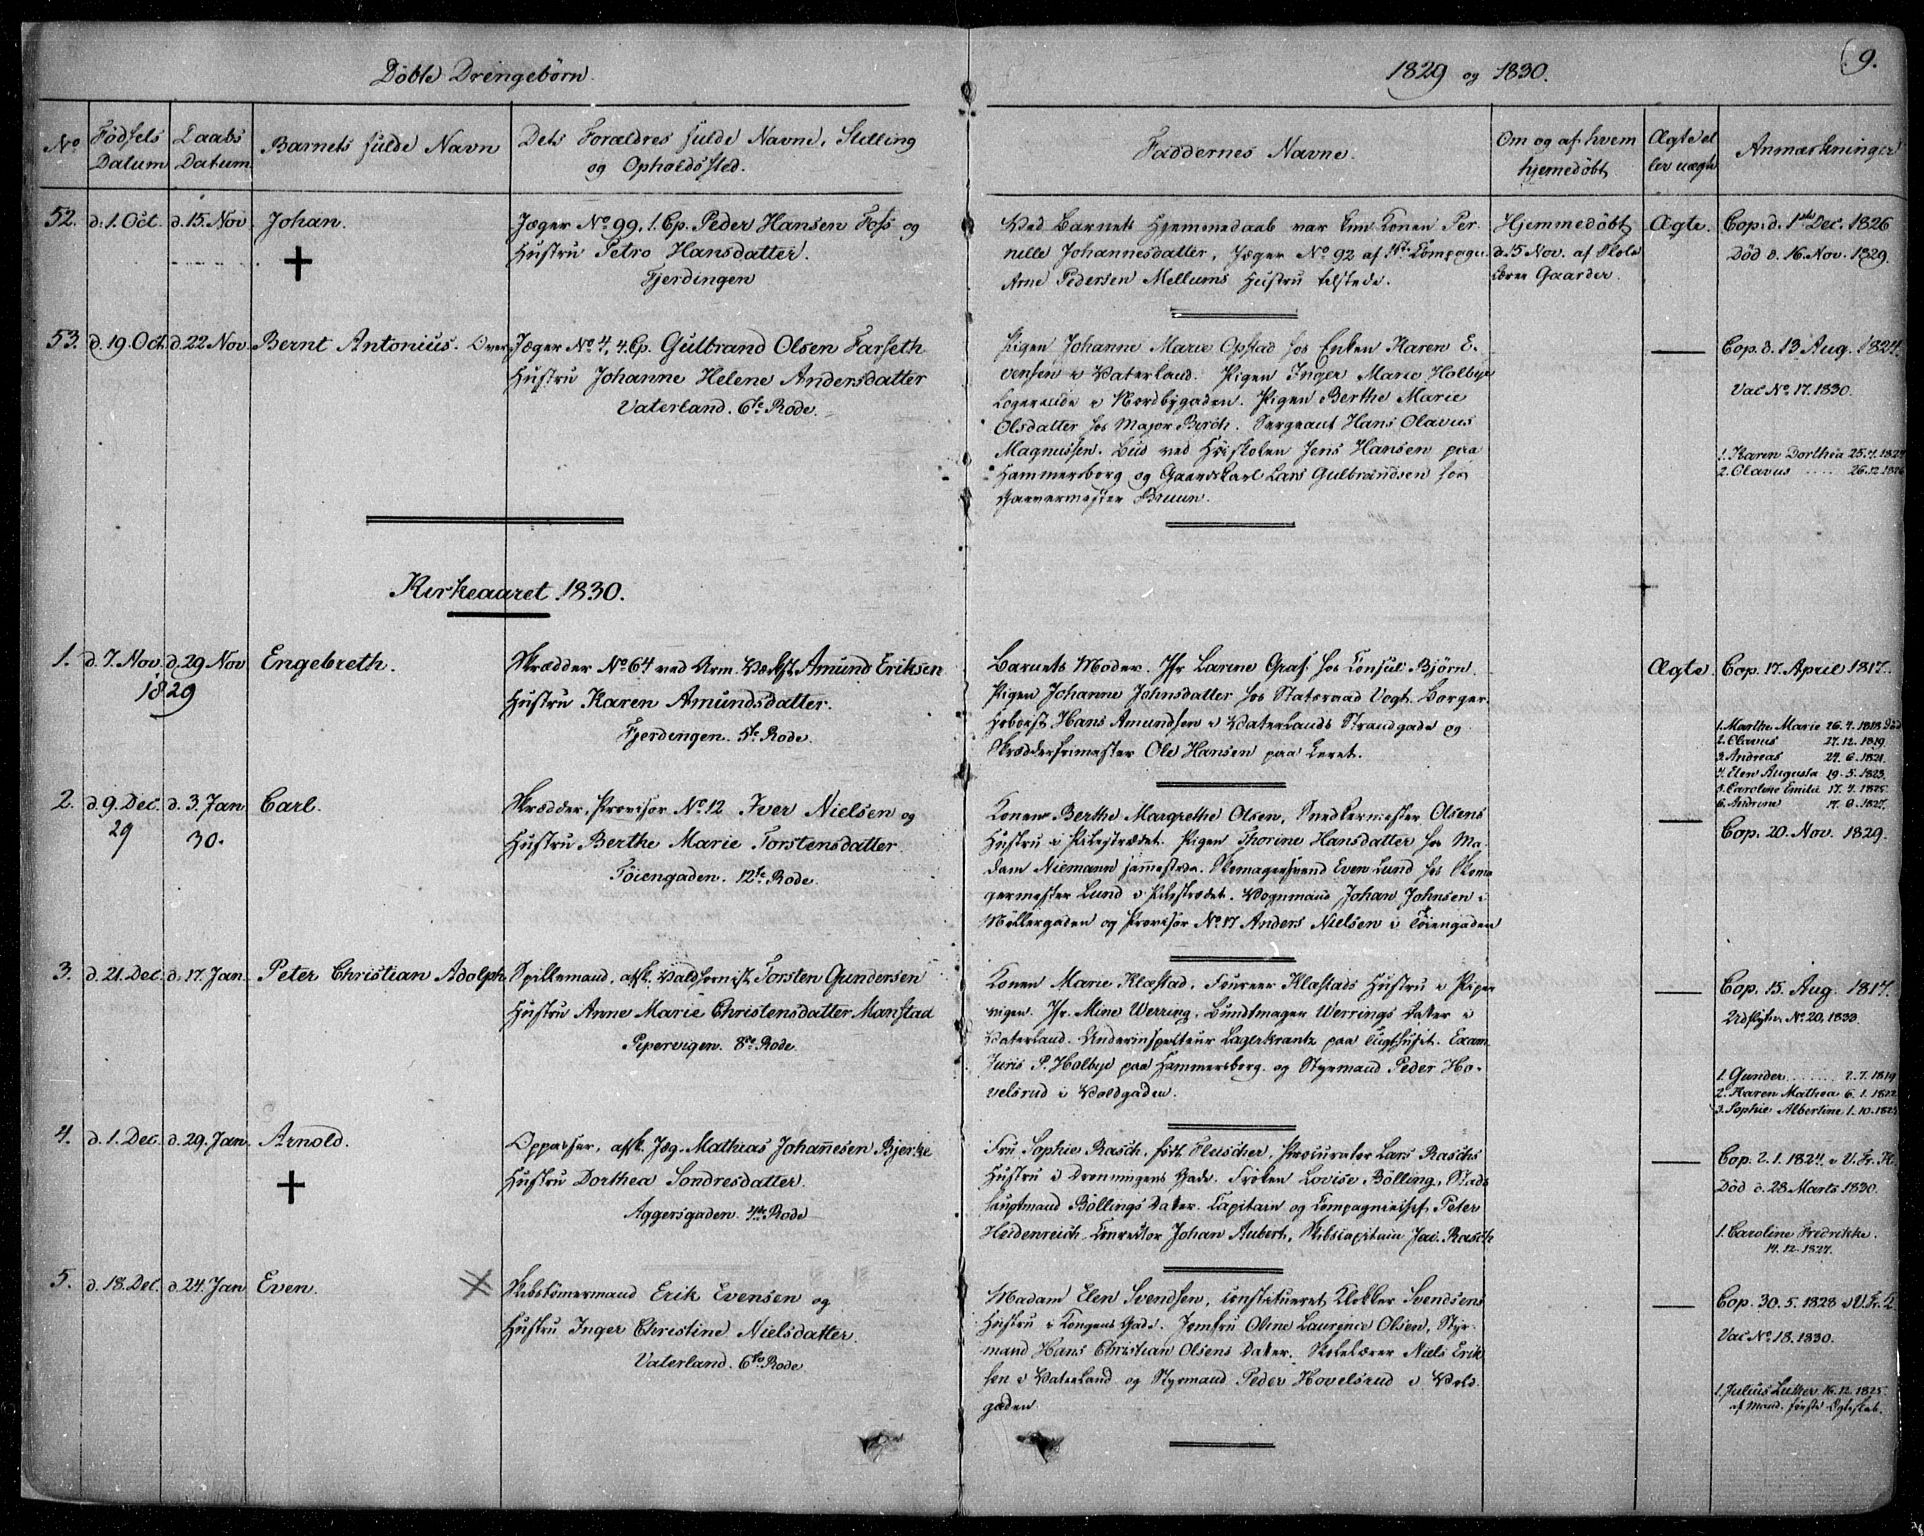 Döbte Drengebørn.
1829 og 1830.
9.
No
Födsels Datum
Daabs Datum
Barnets fulde Navn
Dets Forældres fulde Navne, Stilling
og Opholdssted.
Faddernes Navne.
Om og af hvem
hjemedöbt
Ægte el
ler uægte
Anmærkninger
52. d. 1. Oct. d. 15. Nov Johan.
Jæger No 99, 1. Cp. Peder Hansen Foss og
Hustru Petro Hansdatter.
Fjerdingen
Ved Barnets Hjemmedaab var kun Konen Per
nille Johannesdatter, Jæger No 92 af 4st. Compagni
Arne Pedersen Mellums Hustru tilstede.
Hjemmedöbt
d. 15 Nov. af Skole
lærer Gaarder.
Ægte.
Cop. d. 1ste Dec. 1826
Död d. 16. Nov. 1829.
53. d. 19. Oct. d. 22 Nov. Bernt Antonius.
Over Jæger No 4, 4. Cp. Gulbrand Olsen Farseth
Hustru Johanne Helene Andersdatter
Vaterland. 6te Rode.
Pigen Johanne Marie Opstad hos Enken Karen E-
vensen i Vaterland. Pigen Inger Marie Holbye
Logerende i Nordbygaden. Pigen Berthe Marie
Olsdatter hos Major Birch. Sergeant Hans Olavus
Magnussen. Bud ved Friskolen Jens Hansen paa
Hammersborg og Gaardskarl Lars Gulbrandsen hos
Garvermester Bruun.
Cop. d. 13 Aug. 1824.
Vac No. 17. 1830.
1. Karen Dorthea 25.4.1824
2. Olavus 26.12.1826
Kirkeaaret 1830.
1. d. 7. Nov. d. 29 Nov Engebreth.
1829
Skrædder No 64 ved Arm. Værkst. Amund Eriksen
Hustru Karen Amundsdatter.
Fjerdengen. 5te Rode.
Barnets Moder. Jfr Larine Graf hos Consul Bjørn.
Pigen Johanne Johnsdatter hos Statsraad Vogt. Borger
Hans Amundsen i Vaterlands Strandgade og
Skrædderfrimester Ole Hansen paa Leret.
Ægte.
Cop. 17. April 1817.
1. Marthe Marie 26.4.1818 Död
2. Olavus 27.12.1819
3. Andreas 24.6.1821.
4. Elen Augusta 19.5.1823.
5. Caroline Emilie 17.4.1825.
6. Andrine 17.9.1827.
2. d. 9. Dec. d. 3. Jan Carl.
29 30.
Skrædder, Provisor No. 12 Iver Nielsen og
Hustru Berthe Marie Torstensdatter.
Töiengaden. 12te Rode.
Konen Berthe Margrethe Olsen, Snedkermester Olsens
Hustru i Pilestrædet. Pigen Thorine Hansdatter hos Ma-
dam Niemann sammestede. Skomagersvend Even Lund hos Skoma
germester Lund i Pilestrædet. Vognmand Johan Johnsen i
Möllergaden og Provisor No. 17 Anders Nielsen i Töiengaden
Cop. 20. Nov. 1829.
3. d. 21. Dec. d. 17. Jan. Peter Christian Adolph
Spillemand, afsk. Valdhornist Torsten Gundersen
Hustru Anne Marie Christensdatter Manstad
Pepervigen. 8de Rode.
Konen Marie Klæstad, Foureer Klæstads Hustru i Piper
vigen. Jfr. Mine Werring, Bundtmager Werrings Dater i
Vaterland. Underinspecteur Lagerkrantz paa Tugthuset. Exam.
Juris P. Holbye paa Hammersborg og Styrmand Peder Ho-
velsrud i Voldgaden.
Cop. 15. Aug. 1817.
Udflyttn. No. 20, 1833.
1. Gunder 2.7.1819
2. Karen Mathea 6.1.1822
3. Sophie Albertine 1.10.1825
4. d. 1. Dec. d. 29. Jan. Arnold.
Oppasser, afsk. Jæg. Mathias Johannesen Bjerke
Hustru Dorthea Sondresdatter.
Aggersgaden. 4de Rode
Fru Sophie Rasch, föd Fluscher, Procurator Lars Raschs
Hustru i Dronningens Gade. Fröken Lovise Bölling, Stads
hauptmand Böllings Dater. Capitain og Compagniechef Peter
Heidenreich. Conrector Johan Aubert, Skibscapitain Jac. Rasch
Cop. 2.1.1824 i V. Fr. K
Död d. 28 Marts 1830.
1. Caroline Fredrikke.
14.12.1827.
5. d. 18. Dec. d. 24. Jan Even.
Skibstömermand Erik Evensen og
Hustru Inger Christine Nielsdatter.
Vaterland. 6te Rode
Madam Elen Svendsen, Constitueret Klokker Svendsens
Hustru i Kongens Gade. Jomfru Oline Laurence Olsen, Styr-
mand Hans Christian Olsens Dater. Skolelærer Niels Erik
sen i Vaterland og Styrmand Peder Hovelsrud i Vold-
gaden.
Cop. 30.5.1828 i V. Fr. K
Vac No. 18. 1830.
1. Julius Luther 16.12.1825
af Mand. förste Ægteskab.